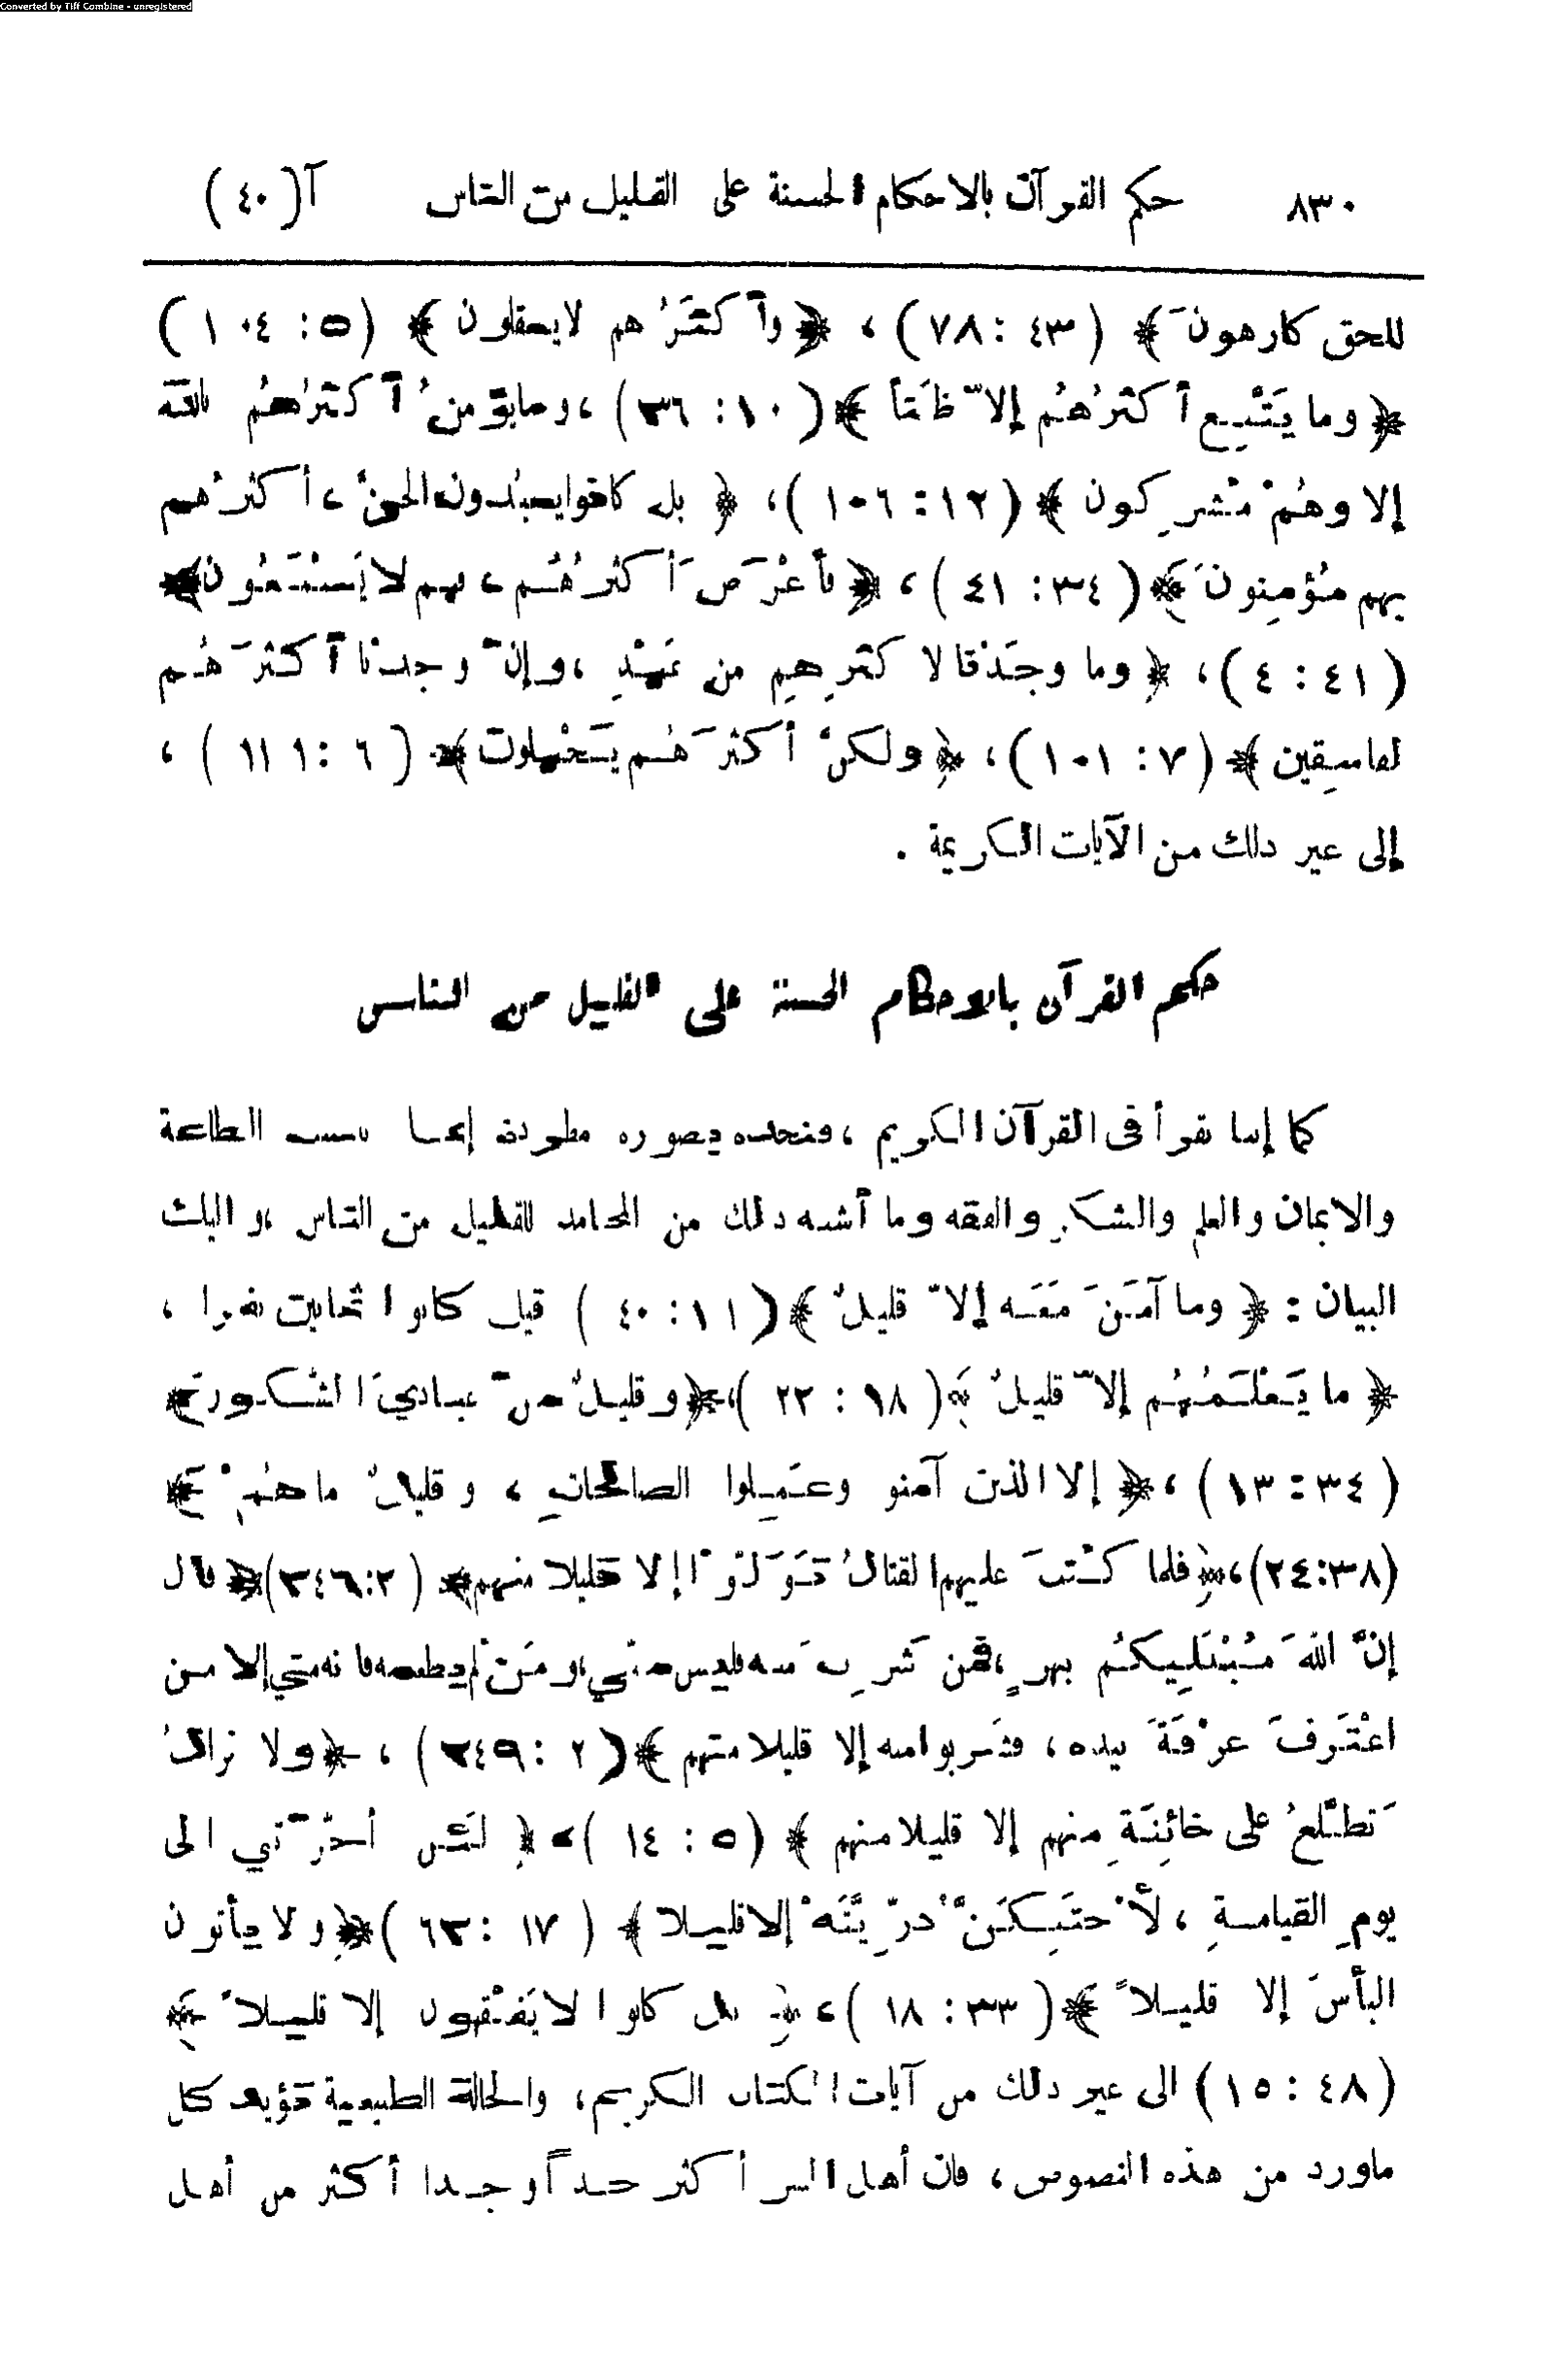 Converted by Tiff Combine - unregistered
٨٣٠ حكم القرآن بالاحكام الحسنة على القليل من الناس آ(٤٠)
للحق كارهونَ﴾ (٤٣ : ٧٨) ، ﴿وأكثرُهم لا يعقلون﴾ (٥ : ١٠٤)
﴿وما يَتْبِع أكثرُهُم إلاّ ظَنّاً﴾ (١٠ : ٣٦) ، وما يؤمنُ أكثرُهُم بالله
إلا وهُمْ مُشرِكون﴾ (١٢ : ١٠٦) ، ﴿بل كانوا يعبُدون الجنّ ، أكثرُهم
بهم مُؤمِنونَ﴾ (٣٤ : ٤١) ، ﴿فأعْرَضَ أكثرُهُم ، فهم لا يَسْتَمعُون﴾
(٤١ : ٤) ، ﴿وما وجَدْنا لاكثرِهِم من عَهْدٍ ، وإنْ وجدنا أكثرَهُم
لفاسِقين﴾ (٧ : ١٠١) ، ﴿ولكنّ أكثرَهُم يَجْهلون﴾ (٦ : ١١١) ،
إلى غير ذلك من الآيات الكريمة .
حكم القرآن بالاحكام الحسنة على القليل من الناس
كما إننا نقرأ في القرآن الكريم ، فنجده بصوره مطردة إنما ينسب الطاعة
والايمان والعلم والشكر والفقه وما أشبه ذلك من المحامد للقليل من الناس ، واليك
البيان : ﴿وما آمَنَ مَعَه إلاّ قليلٌ﴾ (١١ : ٤٠) قيل كانوا ثمانين نفرا ،
﴿ما يَعْلَمُهُم إلاّ قليلٌ﴾ (١٨ : ٢٢) ، ﴿وقليلٌ منْ عباديَ الشكور﴾
(٣٤ : ١٣) ، ﴿إلا الذين آمنو وعَمِلوا الصالحاتِ ، وقليلٌ ما هُمْ﴾
(٣٨:٢٤) ، ﴿فلما كُتبَ عليهم القتالُ تَوَلَّوْا إلا قليلا منهم﴾ (٢:٢٤٦) ﴿قال
إنّ اللهَ مُبْتَلِيكُم بنهرٍ ، فمن شربَ منه فليس منّي ، ومَن لم يطعمه فانه منّي إلا من
اغْتَرفَ غرْفَةَ بيده ، فشربوا منه إلا قليلا منهم﴾ (٢ : ٢٤٩) ، ﴿ولا تزالُ
تَطلّعُ على خائِنَةٍ منهم إلا قليلا منهم﴾ (٥ : ١٤) ، ﴿لئن أخّرْتَني الى
يومِ القيامةِ ، لأحْتَنِكَنّ ذرّيّتَهُ إلا قليلا﴾ (١٧ : ٦٣) ﴿ولا يأتون
البأسَ إلا قليلاً﴾ (٣٣ : ١٨) ، ﴿بل كانوا لا يَفْقهون إلا قليلاً﴾
(٤٨ : ١٥) الى غير ذلك من آيات الكتاب الكريم ، والحالة الطبيعية تؤيد كل
ماورد من هذه النصوص ، فان أهل الشر أكثر جداً وجدا أكثر من أهل